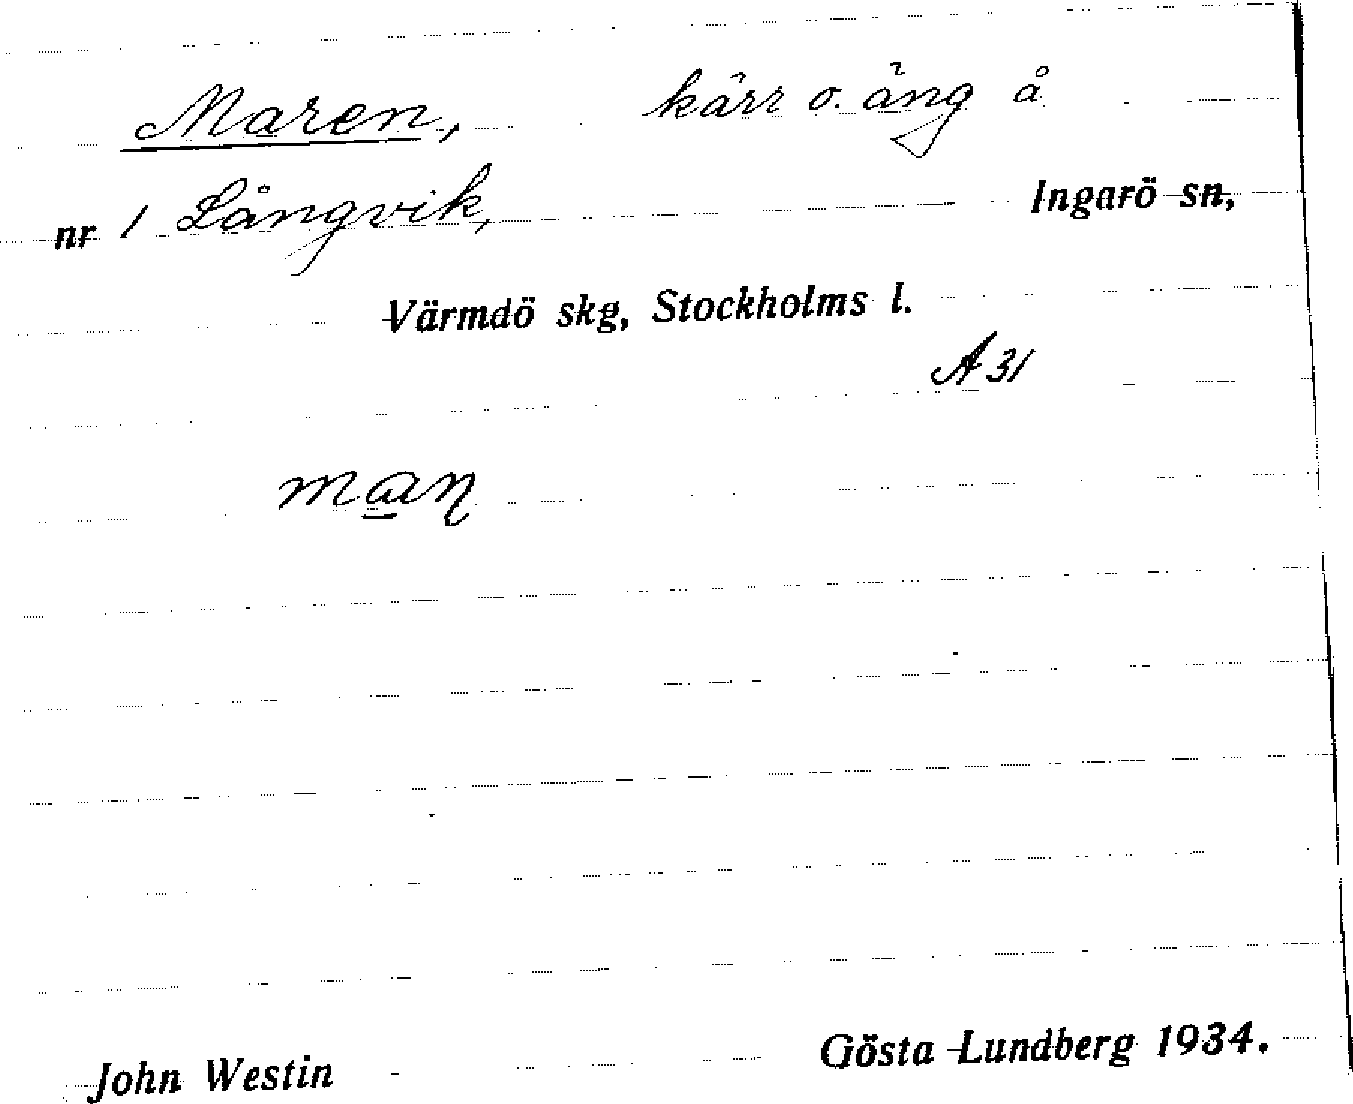 Maren, kärr o. äng å
nr 1 Långvik, Ingarö sn,
Värmdö skg, Stockholms l.
A 31
John Westin Gösta Lundberg 1934.